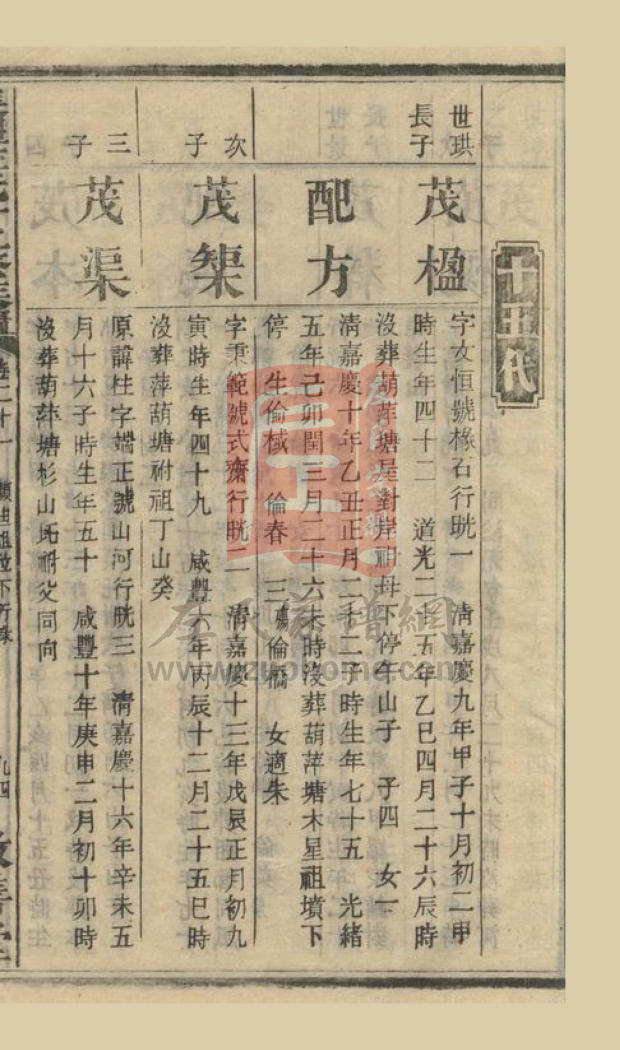 世珙
長子
茂楹
字女恒號椽石行晄一 清嘉慶九年甲子十月初二甲
時生年四十二 道光二十五年乙巳四月二十六辰時
沒葬葫萍塘星對岸祖母下停午山子 子四 女一
配方
清嘉慶十年乙丑正月二十二子時生年七十五 光緒
五年己卯閏三月二十六未時沒葬葫萍塘木星祖墳下
停 生倫棫 倫春 三殤倫橋 女適朱
次子
茂榘
字秉範號式齋行晄二 清嘉慶十三年戊辰正月初九
寅時生年四十九 咸豐六年丙辰十二月二十五巳時
沒葬萍葫塘祔祖丁山癸
三子
茂渠
原諱桂字端正號山河行晄三 清嘉慶十六年辛未五
月十六子時生年五十 咸豐十年庚申二月初十卯時
沒葬葫萍塘杉山圫祔父同向
卷二十一
九四
左氏家譜網
www.zuojiapu.com